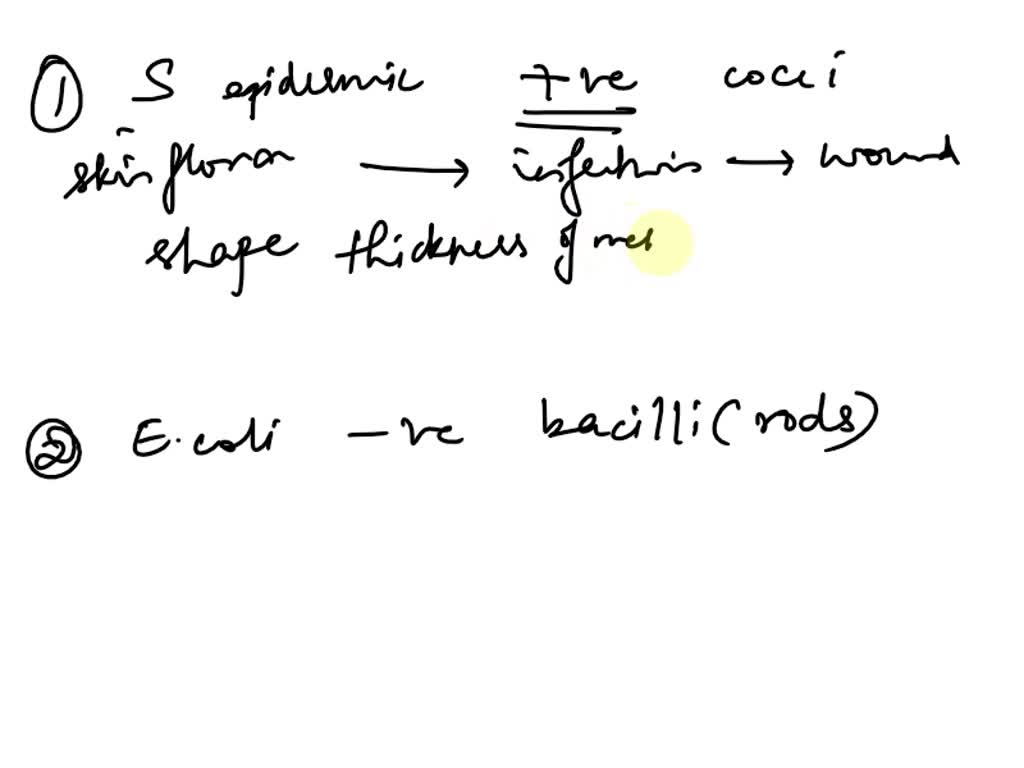 ① S epidermic +ve cocci
skin flora → infections → wound
shape thickness of mes
② E.coli -ve bacilli (rods)